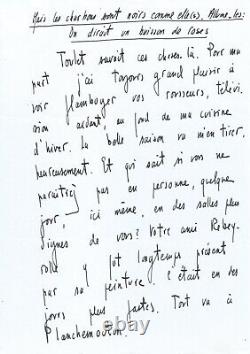 Mais les charbons sont noirs comme elle(s), Allume-les:
On dirait un buisson de roses
Toulet savait ces choses-là. Pour ma
part j'ai toujours grand plaisir à
voir flamboyer vos rousseurs, télévi-
sion ardent, au fond de ma cuisine
d'hiver. La belle saison va m'en tirer,
heureusement. Et qui sait si vous ne
paraîtrez pas en personne, quelque
jour, ici même, en des salles plus
dignes de vous? Votre ami Rebey-
rolle y fut longtemps présent
par sa peinture. C'était en des
jours plus fastes. Tout va à
Planchemouton
ebay